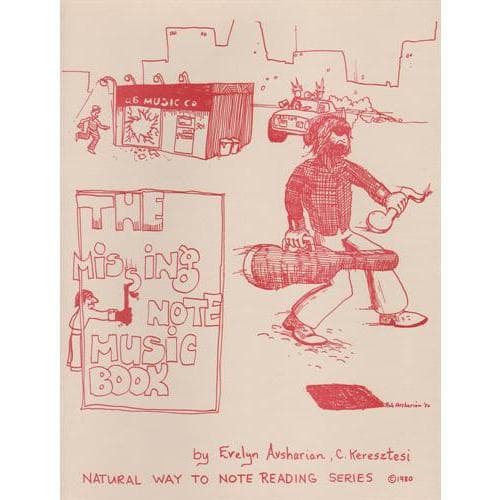 aB MUSIC CO
THE
MiSSing
NOTE
MUSiC
BOOK
Rob Avsharian '80
by Evelyn Avsharian, C. Keresztesi
NATURAL WAY TO NOTE READING SERIES ©1980